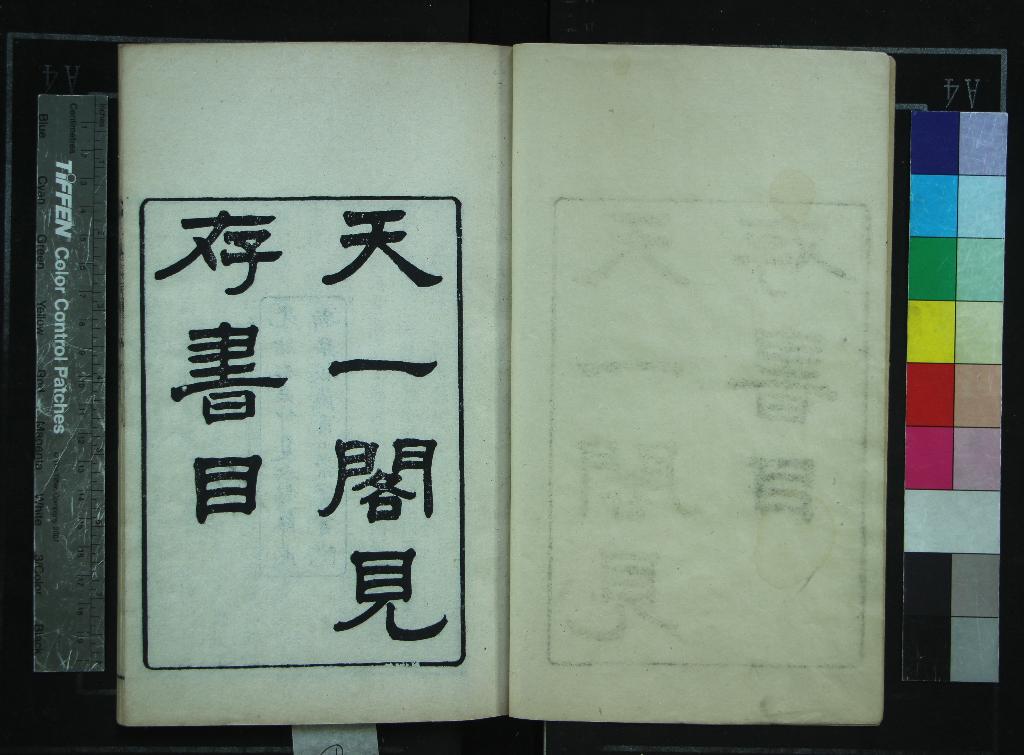 天一閣見
存書目
TIFFEN Color Control Patches
Centimetres
Inches
Blue
Cyan
Green
Yellow
Red
Magenta
White
3/Color
Black
A4
A4